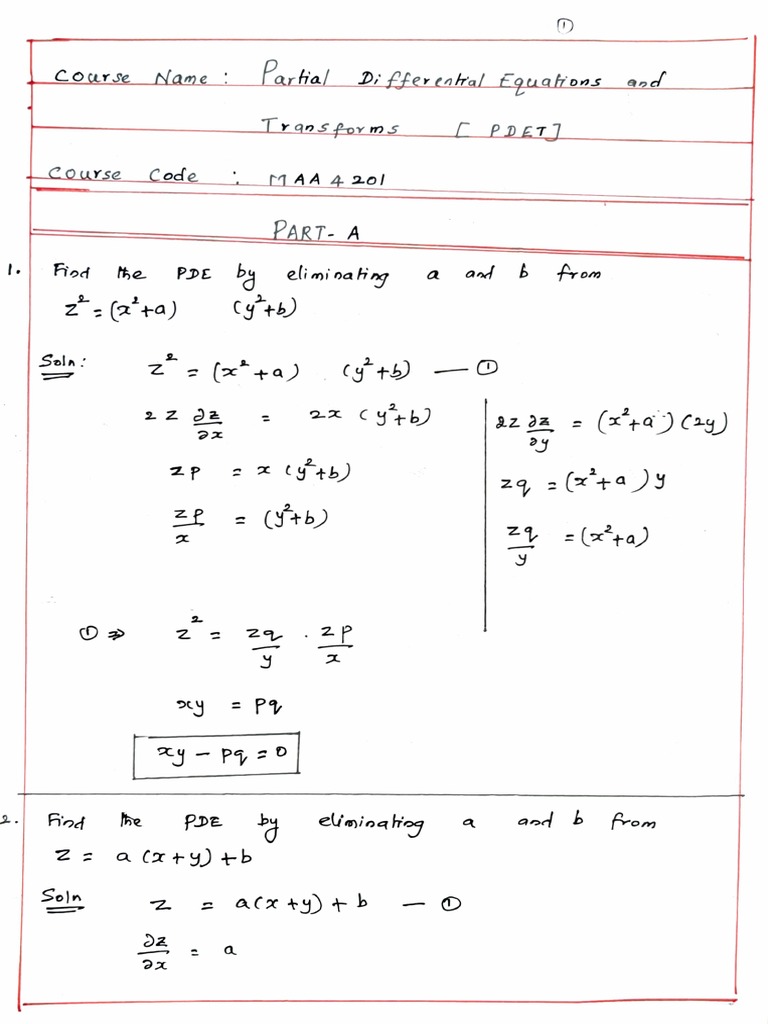 ①
Course Name : Partial Differential Equations and
Transforms [ PDET]
Course Code : MAA4201
PART- A
1. Find the PDE by eliminating a and b from
z² = (x²+a) (y²+b)
Soln: z² = (x²+a) (y²+b) — ①
2z ∂z/∂x = 2x (y²+b)
zp = x (y²+b)
zp/x = (y²+b)
2z ∂z/∂y = (x²+a) (2y)
zq = (x²+a) y
zq/y = (x²+a)
① ⇒ z² = zq/y . zp/x
xy = pq
xy – pq = 0
2. Find the PDE by eliminating a and b from
z = a (x+y) + b
Soln z = a(x+y) + b — ①
∂z/∂x = a